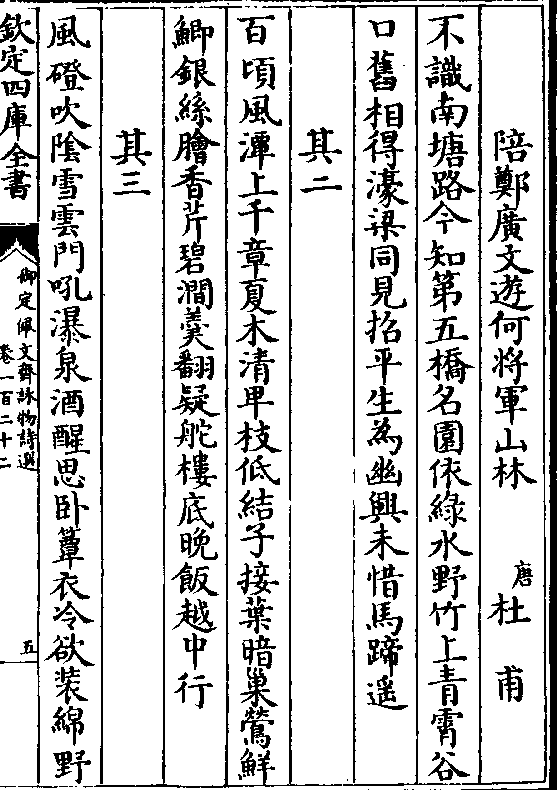 陪鄭廣文遊何將軍山林 唐 杜甫
不識南塘路今知第五橋名園依綠水野竹上青霄谷
口舊相得濠梁同見招平生為幽興未惜馬蹄遥
其二
百頃風潭上千章夏木清卑枝低結子接葉暗巢鶯鮮
鯽銀絲膾香芹碧澗羹翻疑舵樓底晚飯越中行
其三
風磴吹隂雪雲門吼瀑泉酒醒思卧簟衣冷欲装綿野
欽定四庫全書
御定佩文齋詠物詩選
卷一百二十二
五